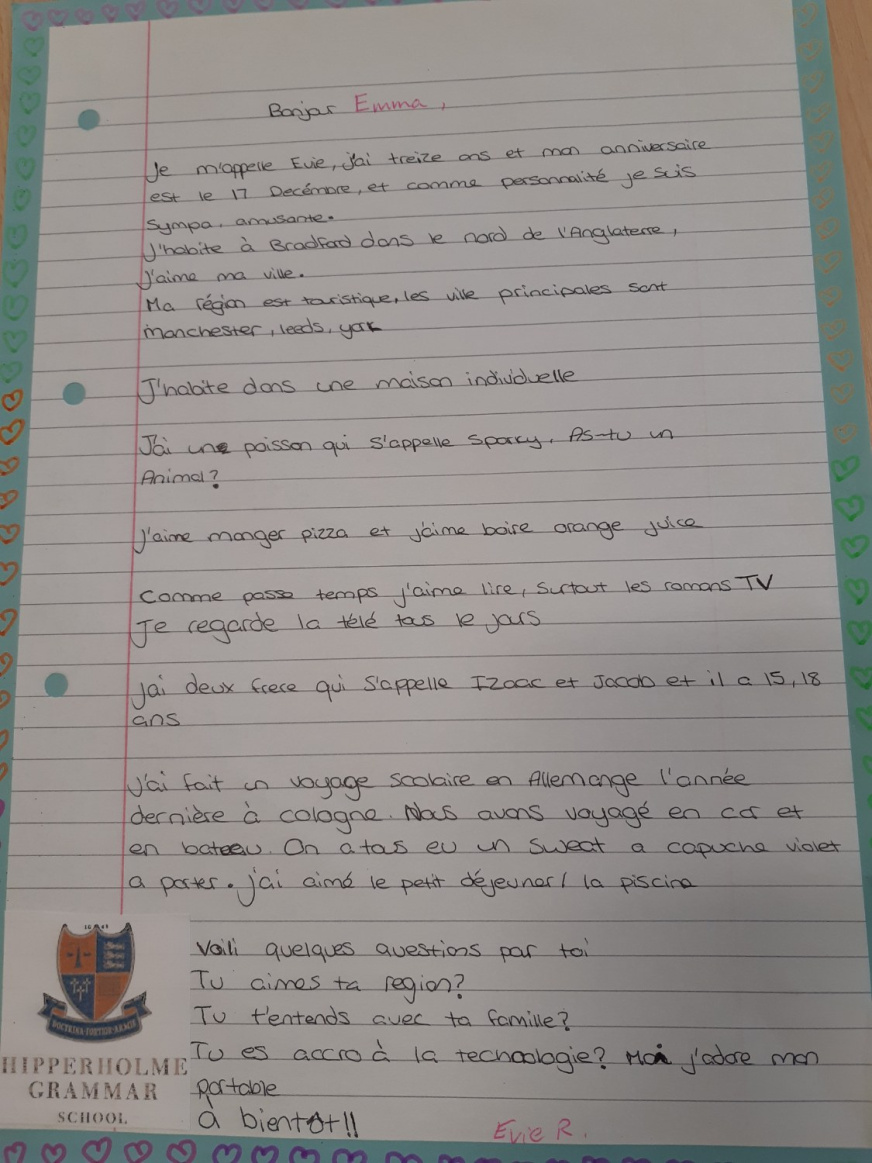 Bonjar Emma,
Je m'appelle Evie, j'ai treize ans et mon anniversaire
est le 17 Decémbre, et comme personnalité je suis
sympa, amusante.
J'habite à Bradford dans le nord de l'Anglaterre,
j'aime ma ville.
Ma région est touristique, les ville principales sont
manchester, leeds, york
J'habite dans une maison individuelle
J'ai une poisson qui s'appelle Sparky, As-tu un
Animal?
J'aime manger pizza et j'aime boire orange juice
Comme passe temps j'aime lire, surtout les romans TV
Je regarde la télé tous le jours
J'ai deux frere qui s'appelle Izaac et Jacob et il a 15, 18
ans
J'ai fait un voyage scolaire en Allemange l'année
dernière à cologne. Nous avons voyagé en car et
en bateau. On a tous eu un sweat a capuche violet
a porter. j'ai aimé le petit déjeuner/ la piscine
Voili quelques questions par toi
Tu aimes ta region?
Tu t'entends avec ta famille?
Tu es accro à la technologie? Moi j'adore mon
portable
à bientôt!!
Evie R.
DOCTRINA FORTIOR ARMIS
HIPPERHOLME
GRAMMAR
SCHOOL